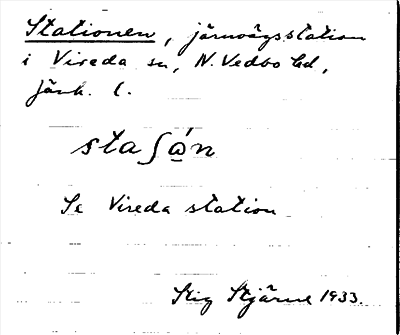 Stationen, järnvägsstation
i Vireda sn, N. Vedbo hd,
Jönk. l.
staʃώ̲n
Se Vireda station
Stig Stjärne 1933.